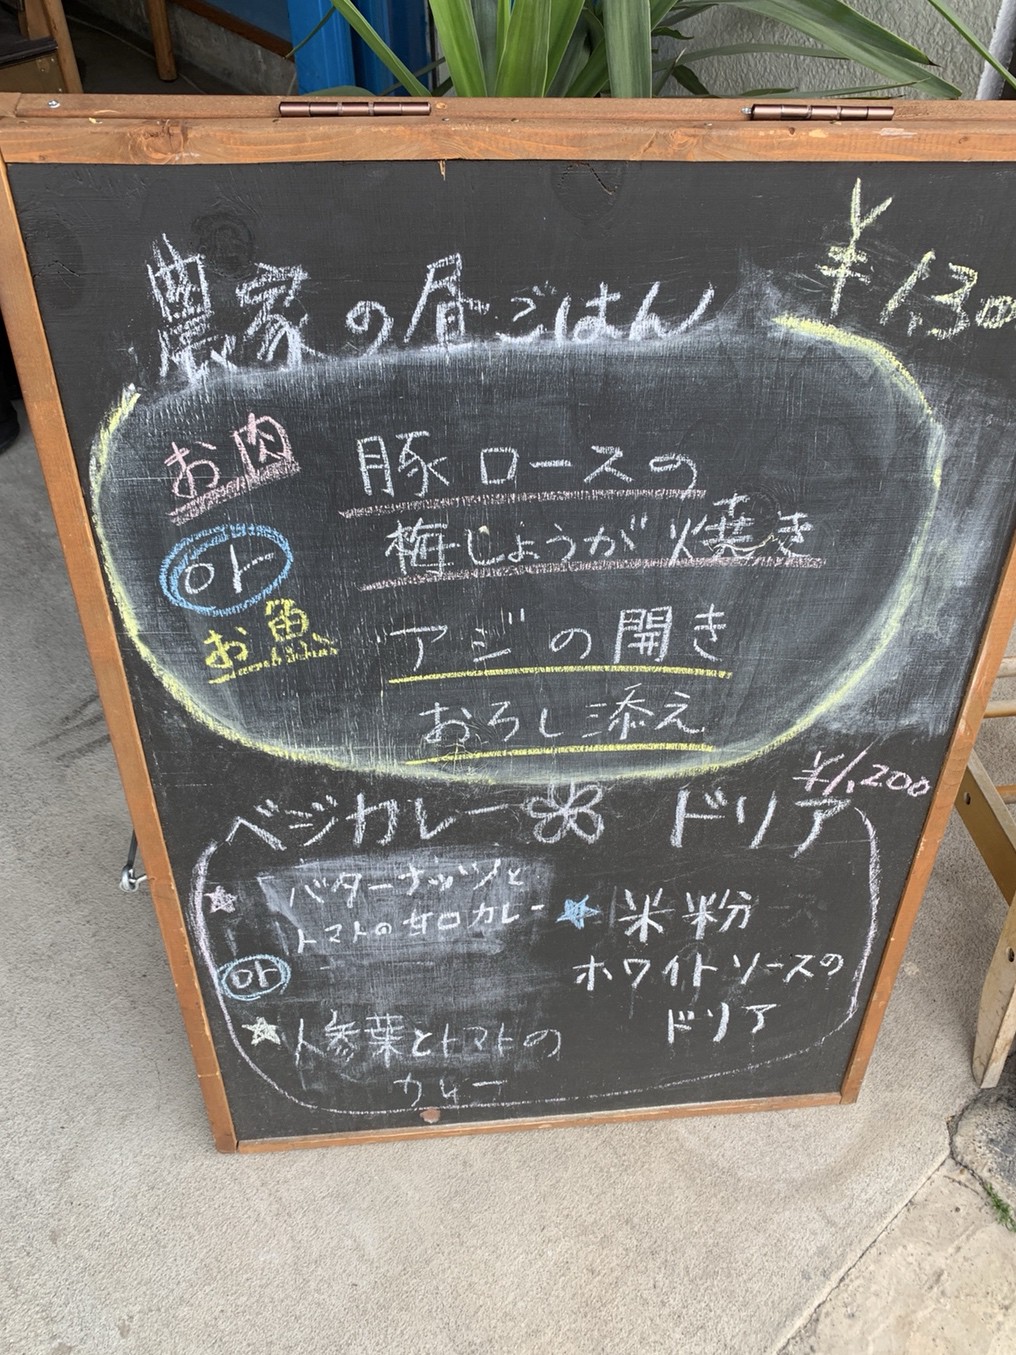 農家の昼ごはん ¥1,300
お肉 豚ロースの
梅しょうが焼き
or
お魚 アジの開き
おろし添え
ベジカレー ドリア ¥1,200
バターナッツと
トマトの甘口カレー
or
人参葉とトマトの
カレー
米粉
ホワイトソースの
ドリア